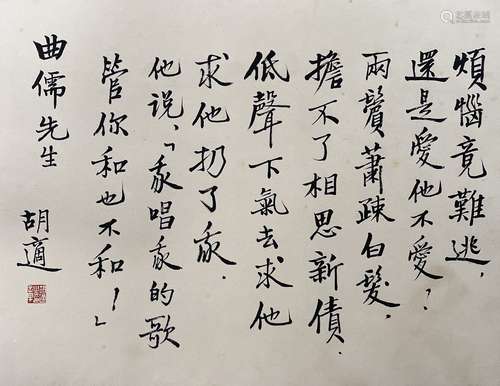 煩惱竟難逃，
還是愛他不愛？
兩鬢蕭疎白髮，
擔不了相思新債．
低聲下氣去求他
求他扔了我．
他说，「我唱我的歌
管你和也不和！」
曲儒先生
胡適